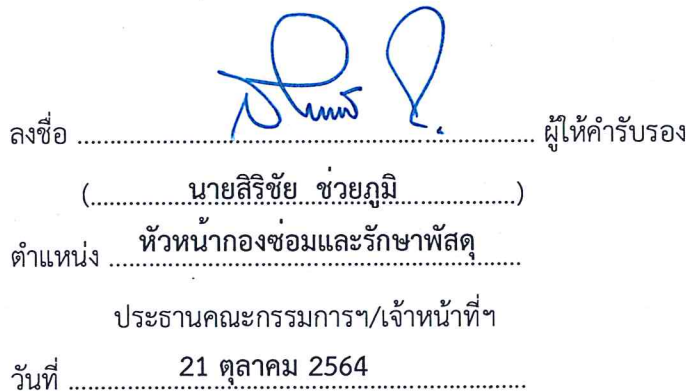 ลงชื่อ ........................................ ผู้ให้คำรับรอง
(........นายสิริชัย ช่วยภูมิ........)
ตำแหน่ง ....หัวหน้ากองซ่อมและรักษาพัสดุ....
ประธานคณะกรรมการฯ/เจ้าหน้าที่ฯ
วันที่ ........21 ตุลาคม 2564........